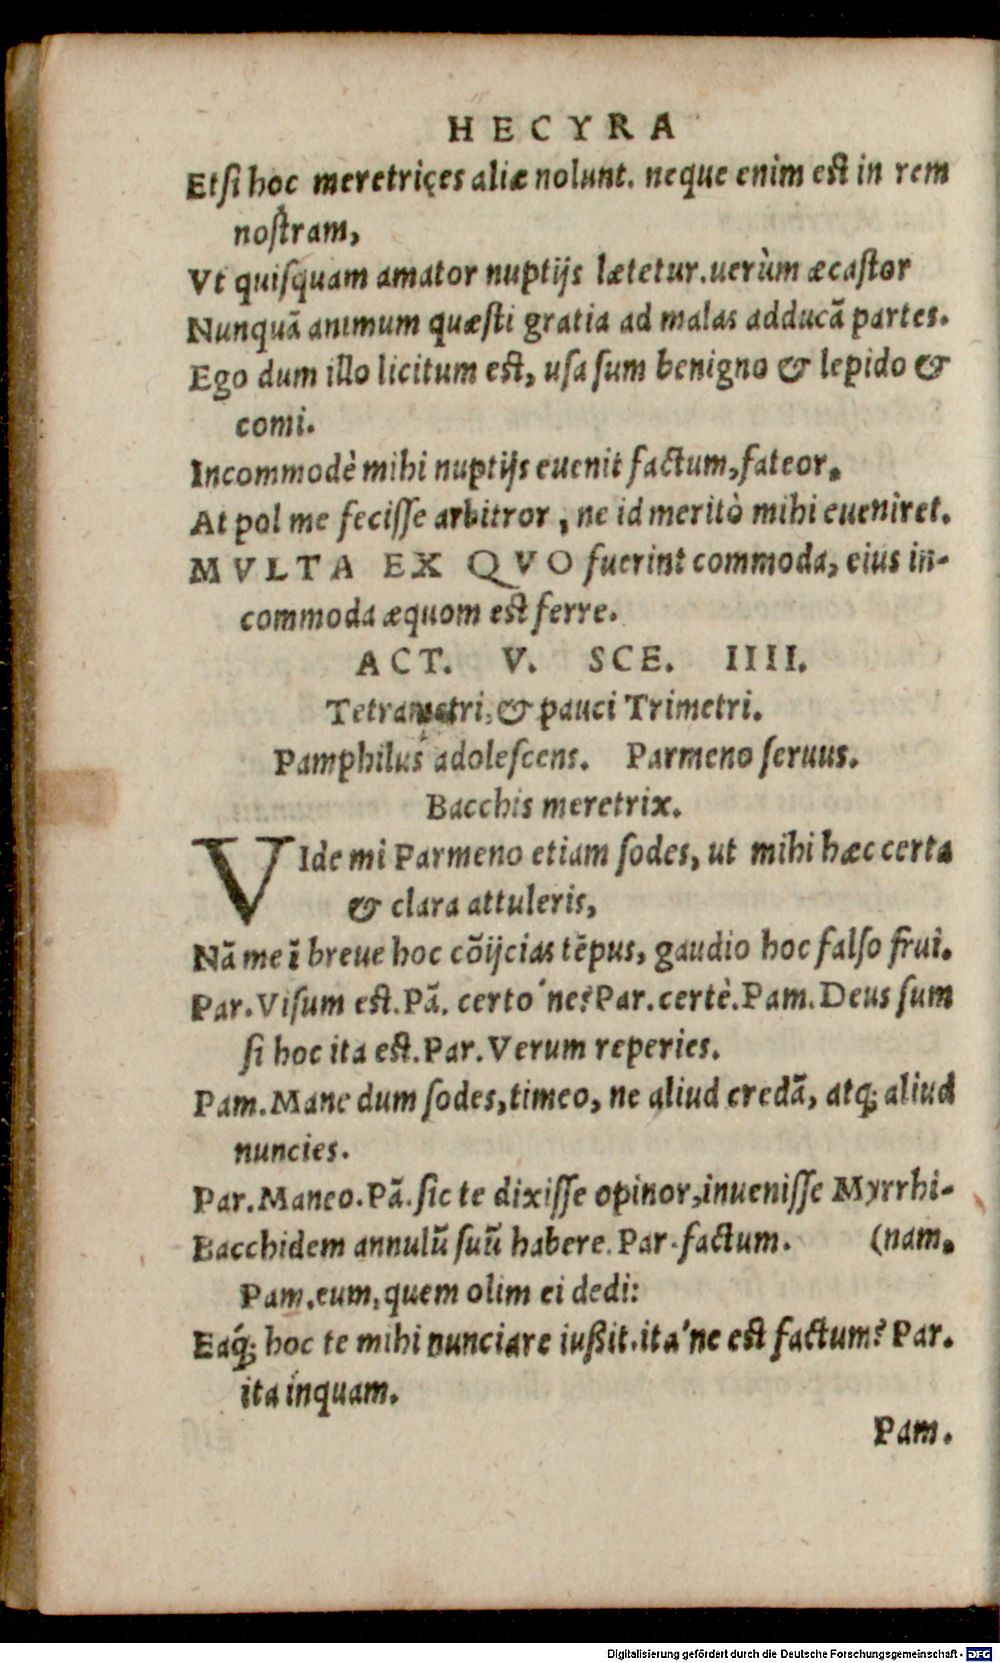 HECYRA
Etſi hoc meretriçes aliæ nolunt. neque enim est in rem
nostram,
Vt quiſquam amator nuptijs lætetur. uerùm æcaſtor
Nunquã animum quæſti gratia ad malas adducã partes.
Ego dum illo licitum est, uſa ſum benigno & lepido &
comi.
Incommodè mihi nuptijs euenit factum, fateor.
At pol me feciſſe arbitror, ne id meritò mihi eueniret.
MVLTA EX QVO fuerint commoda, eius in-
commoda æquom est ferre.
ACT. V. SCE. IIII.
Tetrametri, & pauci Trimetri.
Pamphilus adoleſcens. Parmeno ſeruus.
Bacchis meretrix.
VIde mi Parmeno etiam ſodes, ut mihi hæc certa
& clara attuleris,
Nã me ĩ breue hoc cõijcias tẽpus, gaudio hoc falſo frui.
Par. Viſum est. Pã. certo'ne? Par. certè. Pam. Deus ſum
ſi hoc ita est. Par. Verum reperies.
Pam. Mane dum ſodes, timeo, ne aliud credã, atq; aliud
nuncies.
Par. Maneo. Pã. ſic te dixiſſe opinor, inueniſſe Myrrhi-
Bacchidem annulũ ſuũ habere. Par. factum. (nam.
Pam. eum, quem olim ei dedi:
Eaq́; hoc te mihi nunciare iußit. ita'ne est factum? Par.
ita inquam.
Pam.
Digitalisierung gefördert durch die Deutsche Forschungsgemeinschaft - DFG